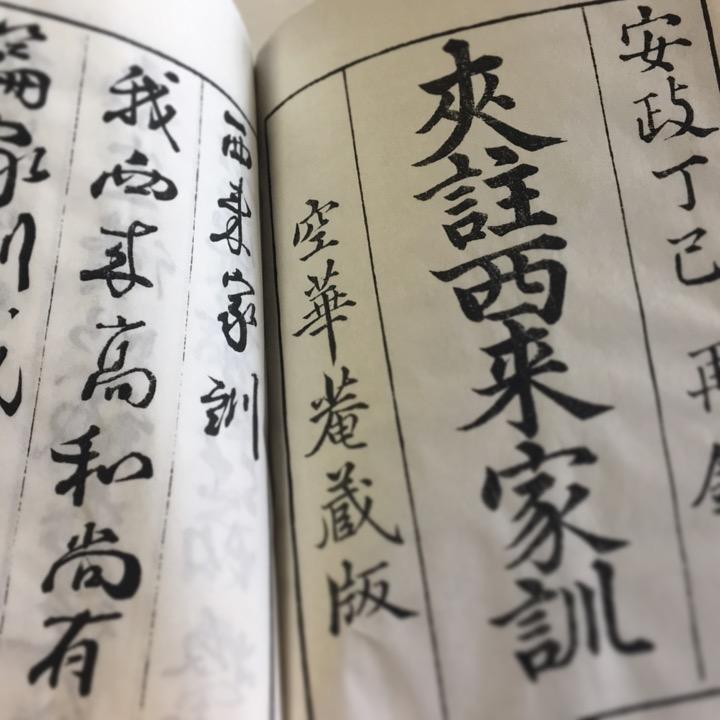 安政丁巳 再
夾註西来家訓
空華菴蔵版
西来家訓
我西来高和尚有
家訓